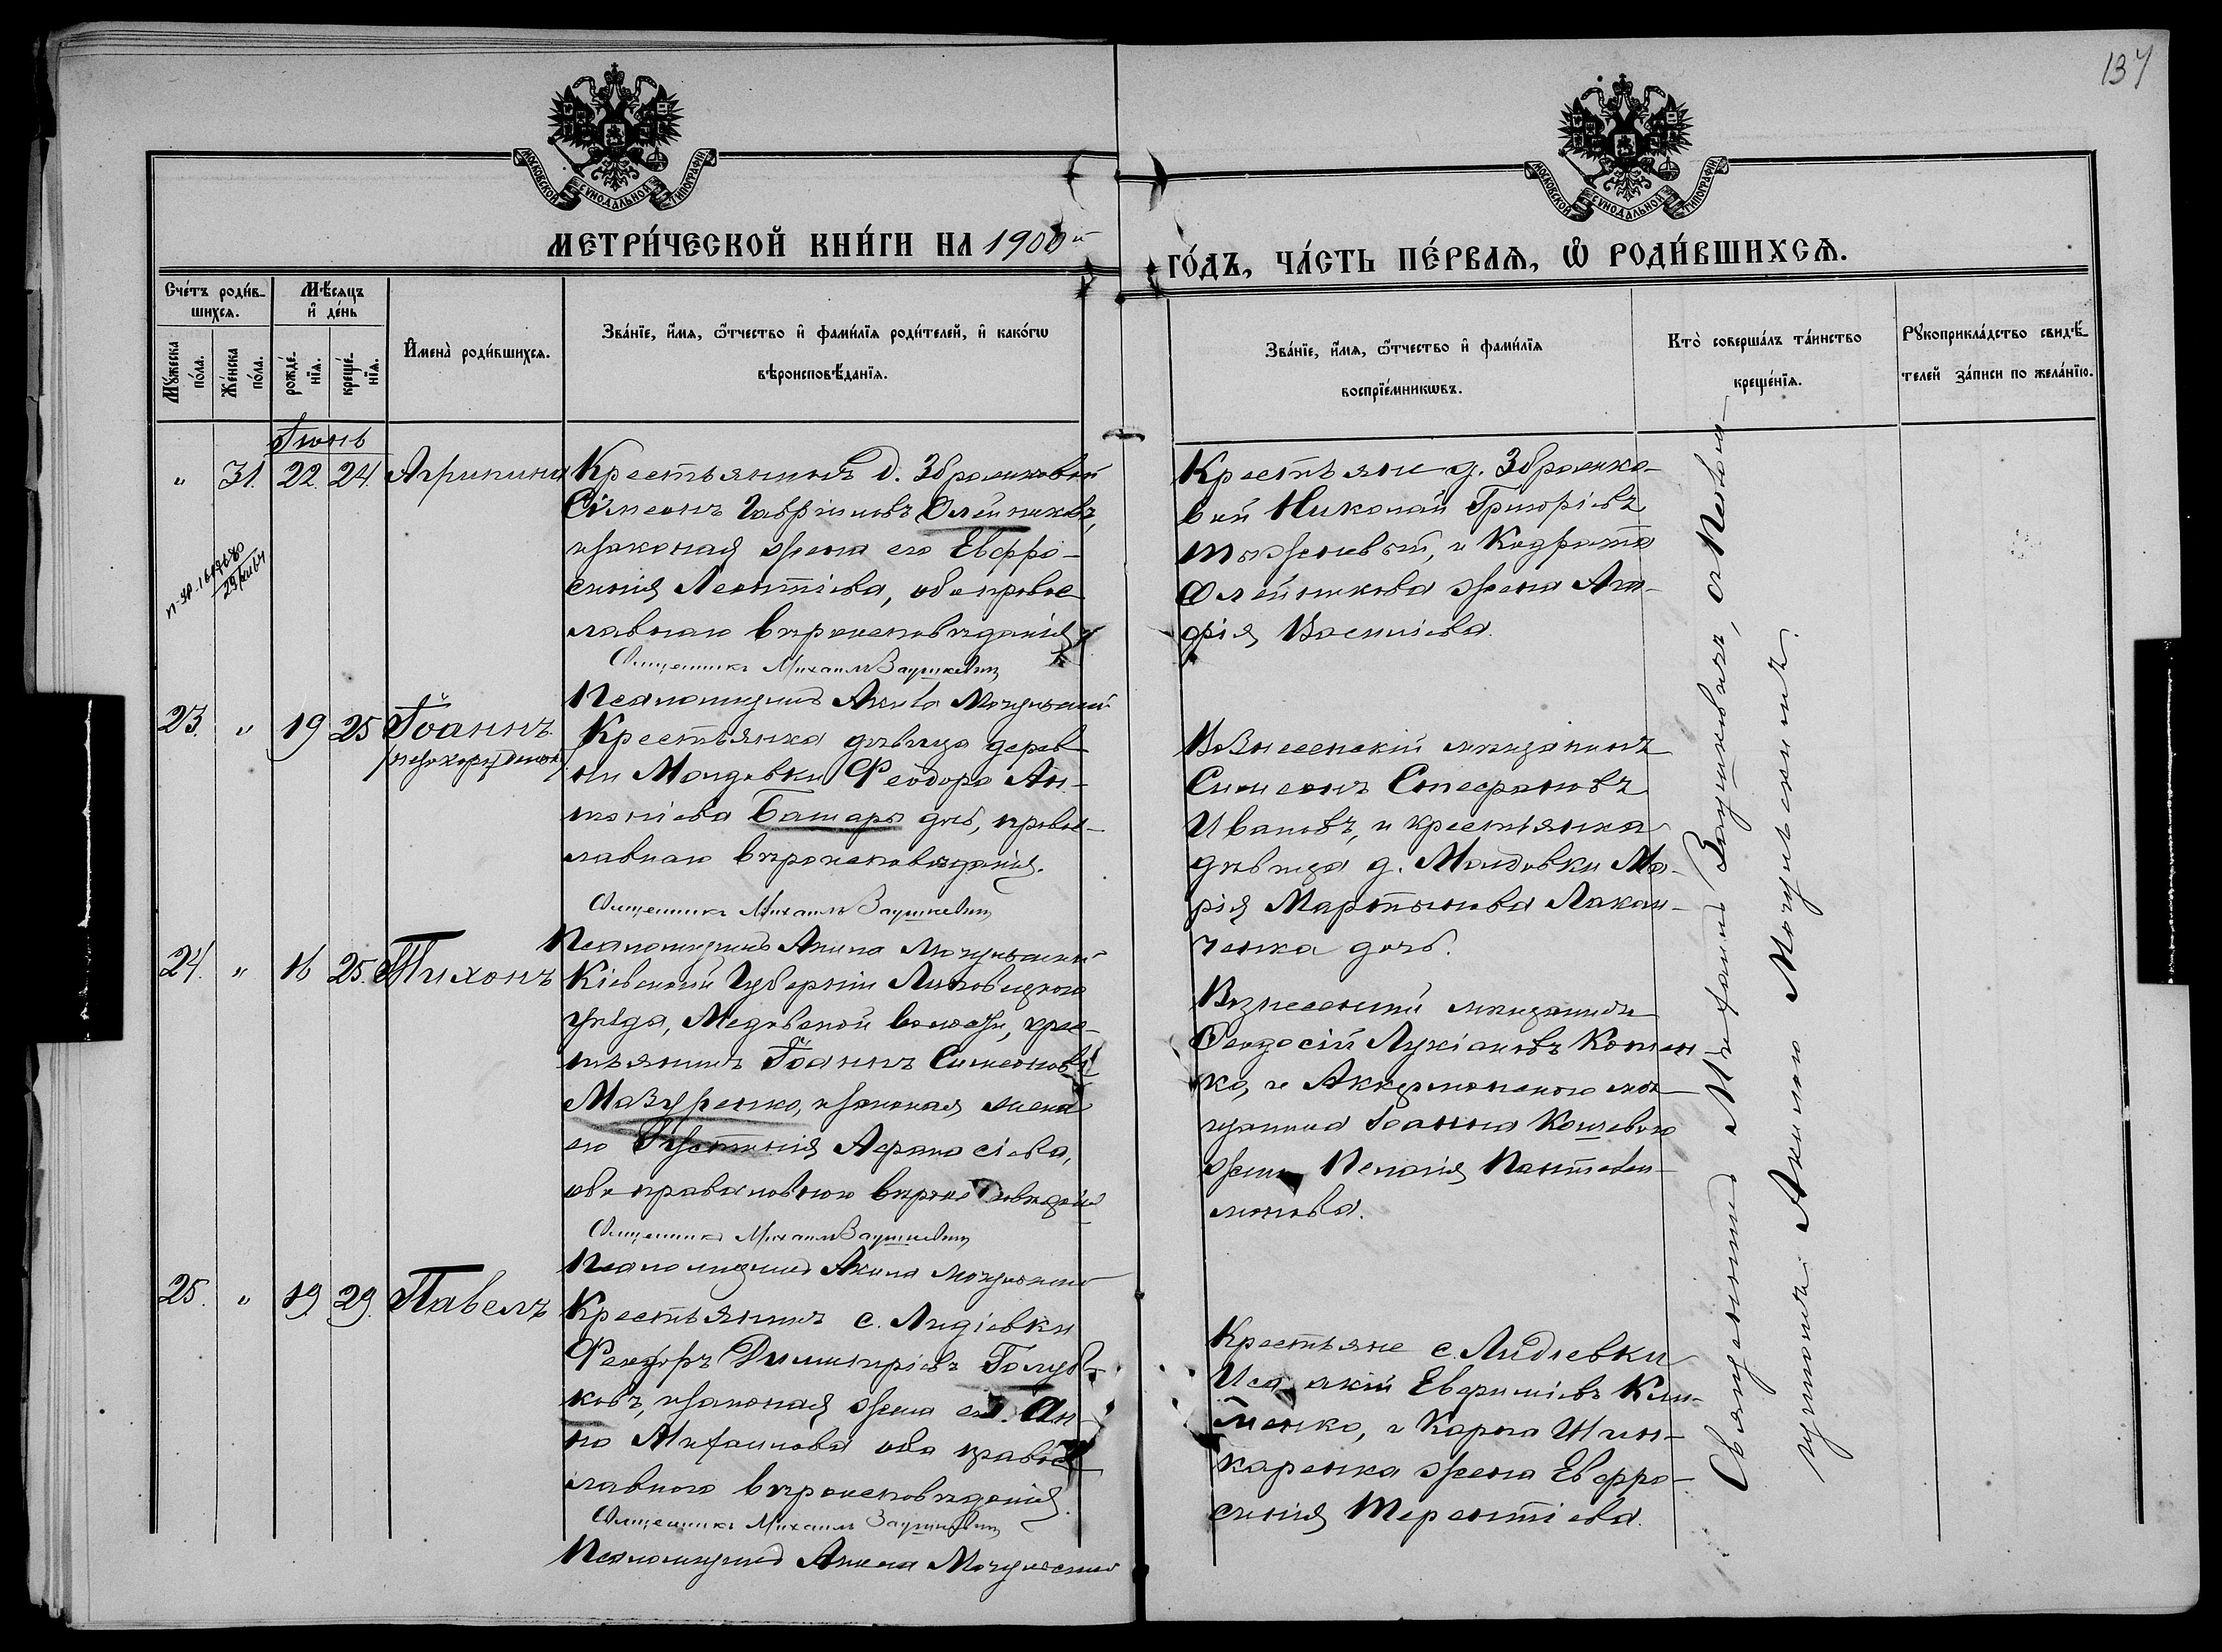 137
МОСКОВСКОЙ СѴНОДАЛЬНОЙ ТИПОГРАФІИ
МОСКОВСКОЙ СѴНОДАЛЬНОЙ ТИПОГРАФІИ
МЕТРИ́ЧЕСКОЙ КНИ́ГИ НА 1900й
ГО́ДЪ, ЧА́СТЬ ПЕ́РВАѦ, Ѡ҆ РОДИ́ВШИХСѦ.
Сче́тъ роди́в-
шихсѧ.
Мѣ́сѧцъ
и҆ де́нь
Мꙋ́жеска
по́ла.
Же́нска
по́ла.
рожде́-
нїѧ.
креще́-
нїѧ.
И҆мена̀ роди́вшихсѧ.
Зва́нїе, и҆́мѧ, ѻ҆́тчество и҆ фами́лїѧ роди́телей, и҆ како́гѡ
вѣроисповѣ́данїѧ.
Зва́нїе, и҆́мѧ, ѻ҆́тчество и҆ фами́лїѧ
воспрїе́мникѡвъ.
Кто̀ соверша́лъ та́инство
креще́нїѧ.
Рꙋкоприкла́дство свидѣ́-
телей за́писи по жела́нїю.
Іюнь
" 31. 22. 24. Агрипина
Крестьянинъ д. Збрашковой
Сѵмеонъ Гавріиловъ Олейниковъ,
законная жена его Евфро-
синія Леонтіева, оба правос-
лавнаго вѣроисповѣданія
Священникъ Михаилъ Заушкевичъ
Псаломщикъ Акила Мочульскій
Крестьяне д. Збрашко-
вой Николай Григоріевъ
и Кодрата
Олейникова жена Ага-
фія Василіева.
23. " 19 25 Іоаннъ
/незаконорожденный/
Крестьянка дѣвица дерев-
ни Молдовки Ѳеодора Ан-
тоніева Башары дочь, правос-
лавнаго вѣроисповѣданія.
Священникъ Михаилъ Заушкевичъ
Псаломщикъ Акила Мочульскій
Вознесенскій мѣщанинъ
Симеонъ Стефановъ
Ивановъ, и крестьянка
дѣвица д. Молдовки Ма-
рія Мартынова Лакан-
ченка дочь.
24. " 16 25. Тихонъ
Кіевской Губерніи Липовецкаго
уѣзда, Медовской волости, крес-
тьянинъ Іоаннъ Симеоновъ
Мазуренко, законная жена
его Іустинія Афанасіева,
оба православнаго вѣроисповѣданія
Священникъ Михаилъ Заушкевичъ
Псаломщикъ Акила Мочульскій
Вознесенскій мѣщанинъ
Ѳеодосій Лукіановъ
ко, и Аккерманскаго мѣ-
щанина Іоанна Кошевого
жена Пелагія Пантелеи-
монова.
25. " 19 29. Павелъ
Крестьянинъ с. Лидіевки
Ѳеодоръ Димитріевъ Голуб-
ковъ, законная жена его Ан-
на Михаилова оба правос-
лавнаго вѣроисповѣданія.
Священникъ Михаилъ Заушкевичъ
Псаломщикъ Акила Мочульскій
Крестьяне с. Лидіевки
Исаакій Евфиміевъ Кли-
менко, и Карпа Шин-
каренка жена Евфро-
синія Терентіева.
Священникъ Михаилъ Заушкевичъ, съ Псалом-
щикомъ Акилою Мочульскимъ.